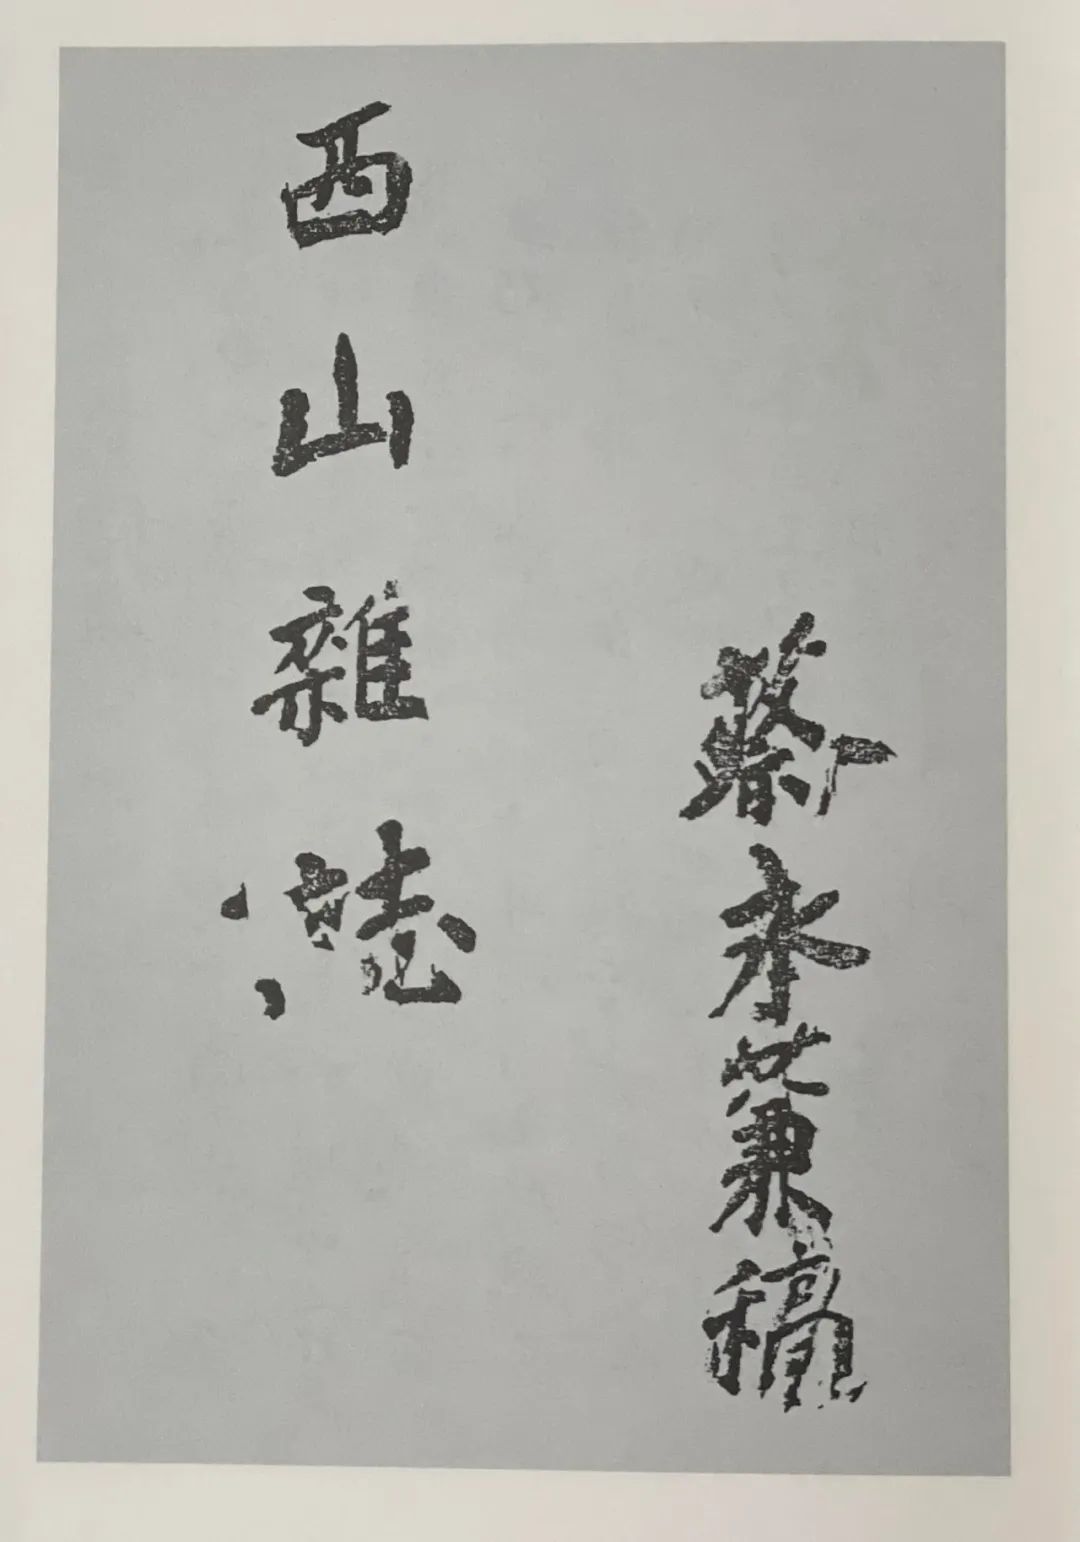 蔡永蒹稿
西山雜誌